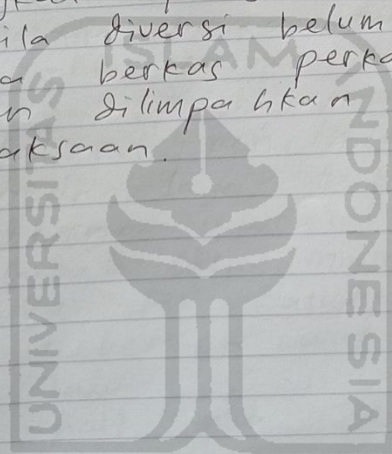 ila diversi belum
a berkas perka
n dilimpahkan
aksaan.
UNIVERSITAS
ISLAM
INDONESIA